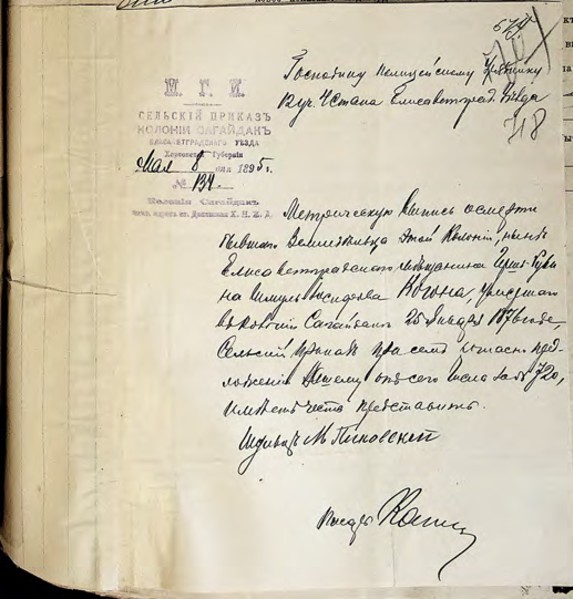 Господину Полицейскому Уряднику
12 уч. 4 Стана Елисаветград. Уѣзда
718
М. Г. И.
СЕЛЬСКІЙ ПРИКАЗЪ
КОЛОНІИ САГАЙДАКЪ
ЕЛИСАВЕТГРАДСКАГО УѢЗДА
Херсонской Губерніи
Мая 8 дня 1895 г.
№ 134
Колонія Сагайдакъ
Метрическую выпись о смерти
бывшаго Земледѣльца этой Колоніи, нынѣ
Елисаветградскаго мѣщанина
Когона, умершаго
въ Колоніи Сагайдакъ 25 Января 1876 года,
Сельскій Приказъ при семъ согласно пред-
ложенія Вашему отъ сего числа за № 720,
имѣетъ честь представить.
Шульцъ М Пиковскій